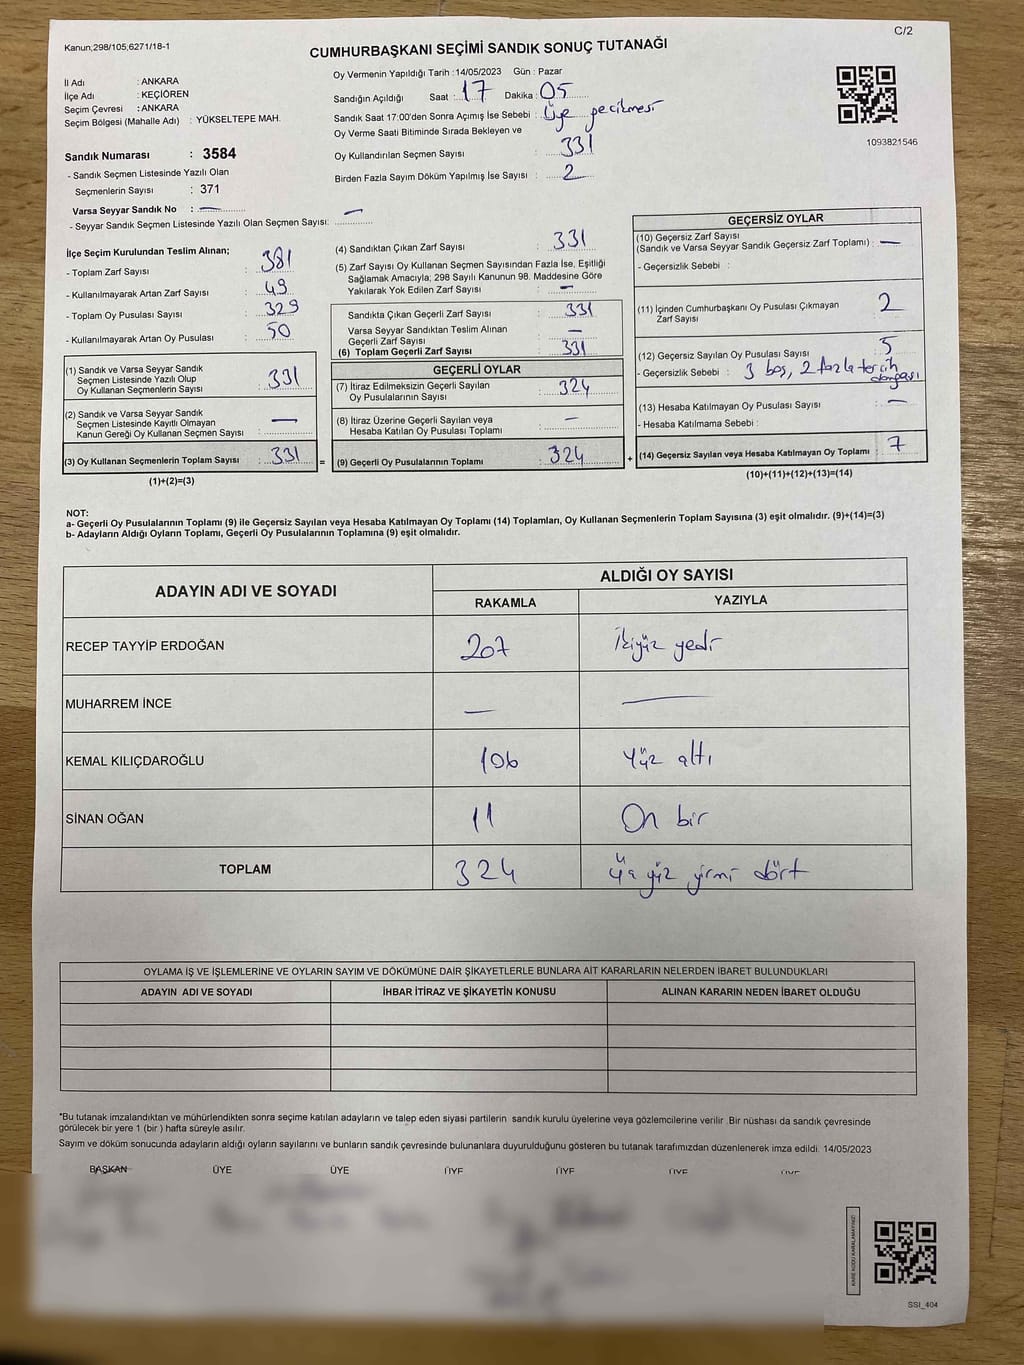 C/2
Kanun;298/105,6271/18-1
CUMHURBAŞKANI SEÇİMİ SANDIK SONUÇ TUTANAĞI
İl Adı : ANKARA
İlçe Adı : KEÇİÖREN
Seçim Çevresi : ANKARA
Seçim Bölgesi (Mahalle Adı) : YÜKSELTEPE MAH.
Sandık Numarası : 3584
- Sandık Seçmen Listesinde Yazılı Olan
Seçmenlerin Sayısı : 371
Varsa Seyyar Sandık No : —
- Seyyar Sandık Seçmen Listesinde Yazılı Olan Seçmen Sayısı: —
Oy Vermenin Yapıldığı Tarih :14/05/2023 Gün : Pazar
Sandığın Açıldığı Saat : 17 Dakika : 05
Sandık Saat 17:00'den Sonra Açımış İse Sebebi : Üye gecikmesi
Oy Verme Saati Bitiminde Sırada Bekleyen ve
Oy Kullandırılan Seçmen Sayısı : 331
Birden Fazla Sayım Döküm Yapılmış İse Sayısı : 2
1093821546
İlçe Seçim Kurulundan Teslim Alınan;
- Toplam Zarf Sayısı : 381
- Kullanılmayarak Artan Zarf Sayısı : 49
- Toplam Oy Pusulası Sayısı : 329
- Kullanılmayarak Artan Oy Pusulası : 50
(1) Sandık ve Varsa Seyyar Sandık
Seçmen Listesinde Yazılı Olup
Oy Kullanan Seçmenlerin Sayısı : 331
(2) Sandık ve Varsa Seyyar Sandık
Seçmen Listesinde Kayıtlı Olmayan
Kanun Gereği Oy Kullanan Seçmen Sayısı : —
(3) Oy Kullanan Seçmenlerin Toplam Sayısı : 331 =
(1)+(2)=(3)
(4) Sandıktan Çıkan Zarf Sayısı : 331
(5) Zarf Sayısı Oy Kullanan Seçmen Sayısından Fazla İse, Eşitliği
Sağlamak Amacıyla; 298 Sayılı Kanunun 98. Maddesine Göre
Yakılarak Yok Edilen Zarf Sayısı : —
Sandıkta Çıkan Geçerli Zarf Sayısı : 331
Varsa Seyyar Sandıktan Teslim Alınan
Geçerli Zarf Sayısı : —
(6) Toplam Geçerli Zarf Sayısı : 331
GEÇERLİ OYLAR
(7) İtiraz Edilmeksizin Geçerli Sayılan
Oy Pusulalarının Sayısı : 324
(8) İtiraz Üzerine Geçerli Sayılan veya
Hesaba Katılan Oy Pusulası Toplamı : —
(9) Geçerli Oy Pusulalarının Toplamı : 324 +
GEÇERSİZ OYLAR
(10) Geçersiz Zarf Sayısı
(Sandık ve Varsa Seyyar Sandık Geçersiz Zarf Toplamı) : —
- Geçersizlik Sebebi :
(11) İçinden Cumhurbaşkanı Oy Pusulası Çıkmayan
Zarf Sayısı 2
(12) Geçersiz Sayılan Oy Pusulası Sayısı : 5
- Geçersizlik Sebebi : 3 boş, 2 fazla tercih
damgası
(13) Hesaba Katılmayan Oy Pusulası Sayısı : —
- Hesaba Katılmama Sebebi :
(14) Geçersiz Sayılan veya Hesaba Katılmayan Oy Toplamı : 7
(10)+(11)+(12)+(13)=(14)
NOT:
a- Geçerli Oy Pusulalarının Toplamı (9) ile Geçersiz Sayılan veya Hesaba Katılmayan Oy Toplamı (14) Toplamları, Oy Kullanan Seçmenlerin Toplam Sayısına (3) eşit olmalıdır. (9)+(14)=(3)
b- Adayların Aldığı Oyların Toplamı, Geçerli Oy Pusulalarının Toplamına (9) eşit olmalıdır.
ADAYIN ADI VE SOYADI ALDIĞI OY SAYISI
RAKAMLA YAZIYLA
RECEP TAYYİP ERDOĞAN 207 İkiyüz yedi
MUHARREM İNCE — —
KEMAL KILIÇDAROĞLU 106 Yüz altı
SİNAN OĞAN 11 On bir
TOPLAM 324 üç yüz yirmi dört
OYLAMA İŞ VE İŞLEMLERİNE VE OYLARIN SAYIM VE DÖKÜMÜNE DAİR ŞİKAYETLERLE BUNLARA AİT KARARLARIN NELERDEN İBARET BULUNDUKLARI
ADAYIN ADI VE SOYADI İHBAR İTİRAZ VE ŞİKAYETİN KONUSU ALINAN KARARIN NEDEN İBARET OLDUĞU
*Bu tutanak imzalandıktan ve mühürlendikten sonra seçime katılan adayların ve talep eden siyasi partilerin sandık kurulu üyelerine veya gözlemcilerine verilir. Bir nüshası da sandık çevresinde
görülecek bir yere 1 (bir ) hafta süreyle asılır.
Sayım ve döküm sonucunda adayların aldığı oyların sayılarını ve bunların sandık çevresinde bulunanlara duyurulduğunu gösteren bu tutanak tarafımızdan düzenlenerek imza edildi. 14/05/2023
BAŞKAN ÜYE ÜYE ÜYE ÜYE ÜYE ÜYE
KARE KODU KARALAMAYINIZ!
SSI_404